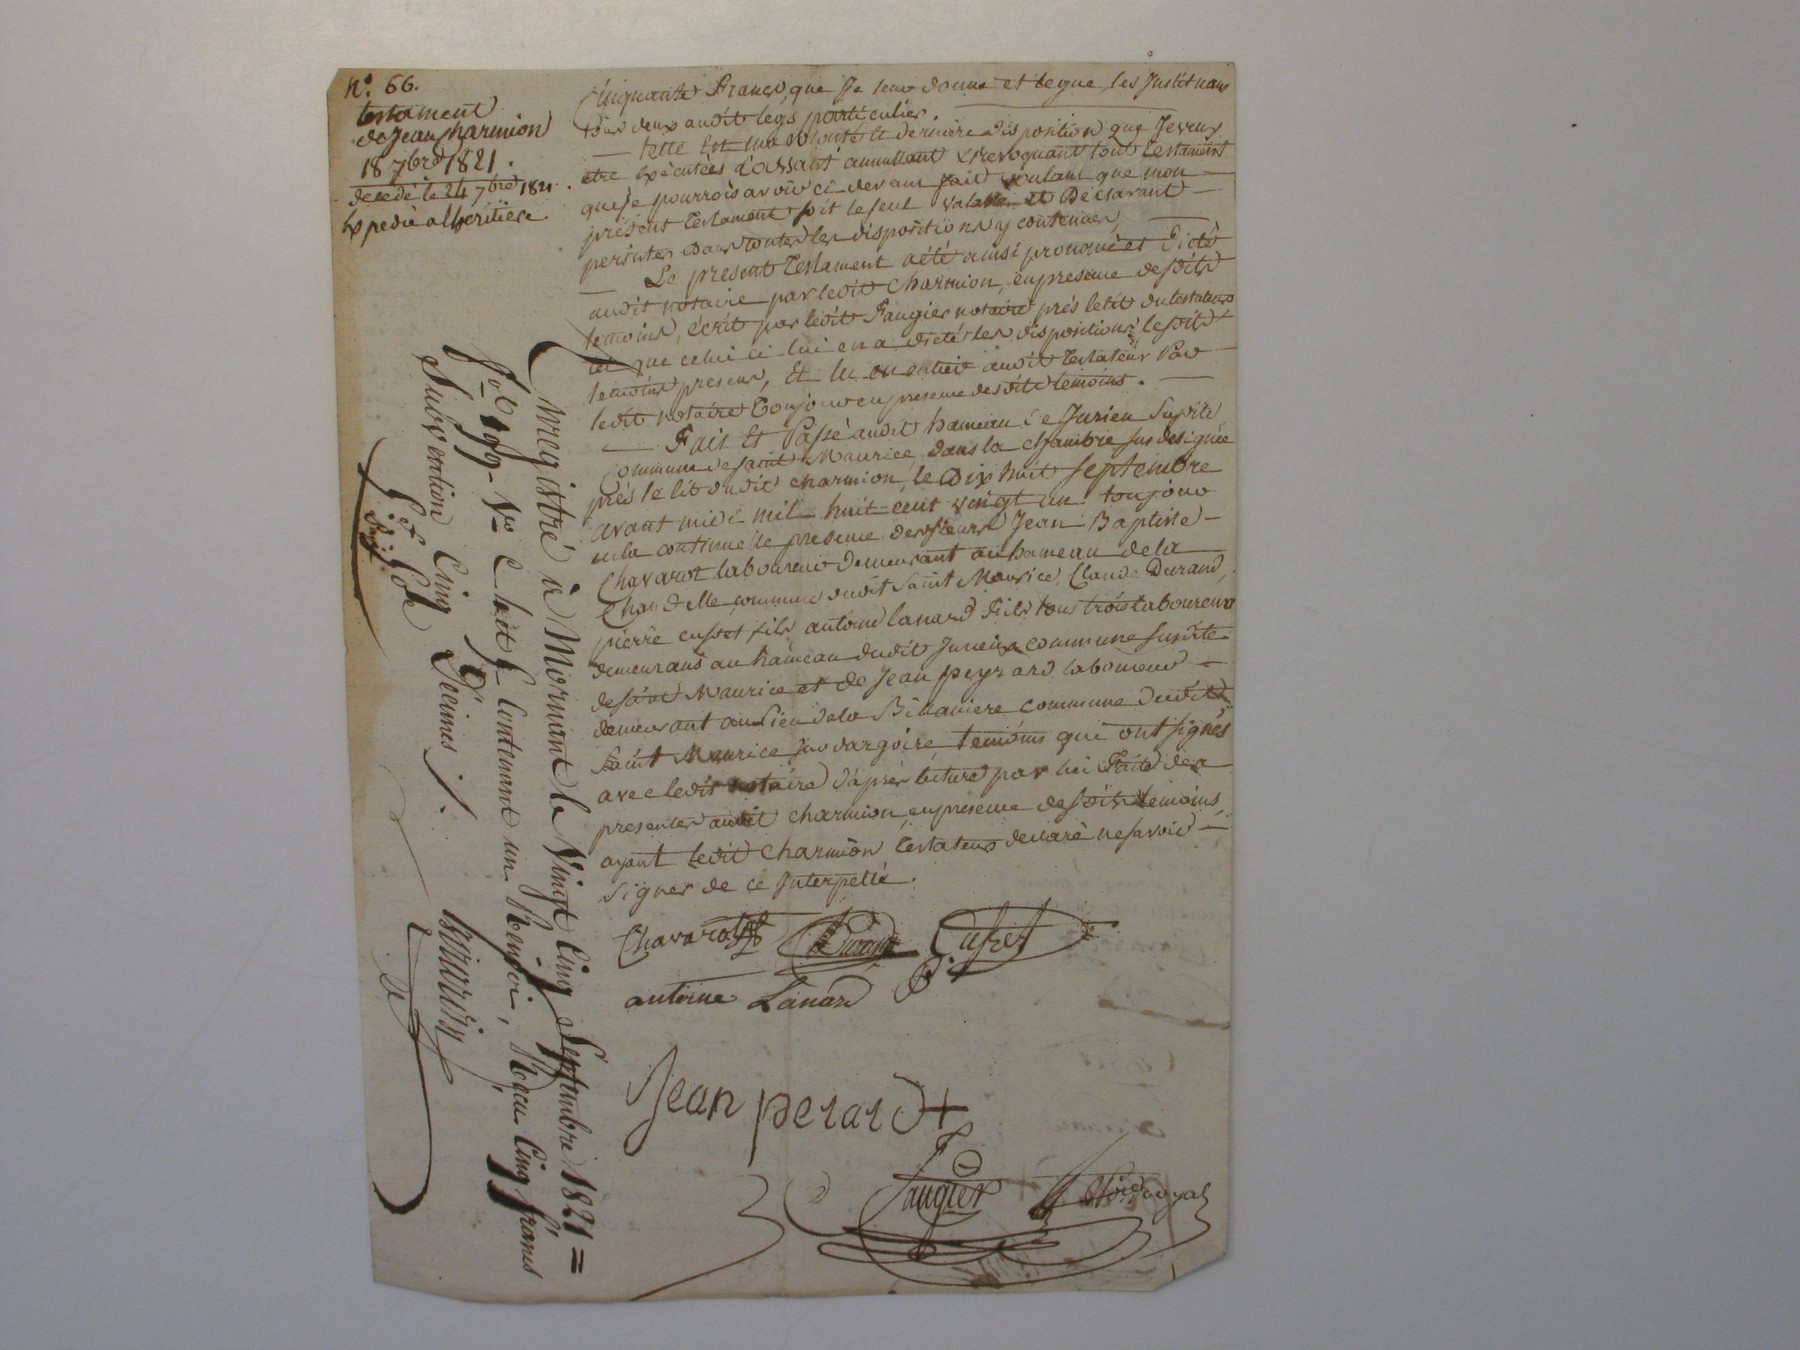 n.° 66.
testament
de Jean Charmion
18 7bre 1821.
décédé le 24 7bre 1821.
Expedié a l'heritière
Cinquante Francs, que Je leur donne et legue, les Instituant
tous deux audit legs particulier.
— Cette est ma volonté et derniere disposition que Je veux
etre executées cassant annullant & revoquant tout testament
que je pourrois avoir ci devant fait voulant que mon —
présent testament soit le seul valable et Déclarant —
persister dans toutes les dispositions y contenues,
— Le present testament a été ainsi prononcé et Dicté
audit notaire par ledit Charmion, en presence desdits
temoins, écrit par ledit Faugier notaire près le lit du testateur
tel que celui ci lui en a dicté les dispositions lesdits
temoins presens, Et lu en entier audit testateur Par
ledit notaire Toujour en presence desdits temoins. —
— Fait Et Passé audit hameau de Jurieu Susdite
Commune de saint Maurice dans la chambre sus designée
près le lit dudit Charmion, le Dix huit Septembre
avant midi mil huit cent vingt un toujour
en la continuelle presence des sieurs Jean Baptiste —
Chavarot laboureur Demeurant au hameau de la
Chaudelle commune dudit Saint Maurice, Claude Durand,
pierre cusset fils antoine lanard fils tous trois laboureurs
demeurans au hameau dudit Jurieux commune susdite
de saint Maurice et de Jean peyrard laboureur —
demeurant au Lieu de la Billaniere commune dudit
Saint Maurice sur dargoire, temoins qui ont signés
avec ledit notaire d'après lecture par lui Faite des
presentes audit charmion, en presence desdits temoins,
ayant ledit Charmion testateur declaré ne savoir —
signer de ce Interpellé.
Chavarot
Durand
P. Cusset
antoine Lanard
Jean perard +
Faugier
Nore Royal
Enregistré à Mornant le Vingt Cinq Septembre 1821 =
fol. 199. Vo. C. huit & Contenant un Renvoi, Recu Cinq francs
Subvention Cinquante Decimes ./.